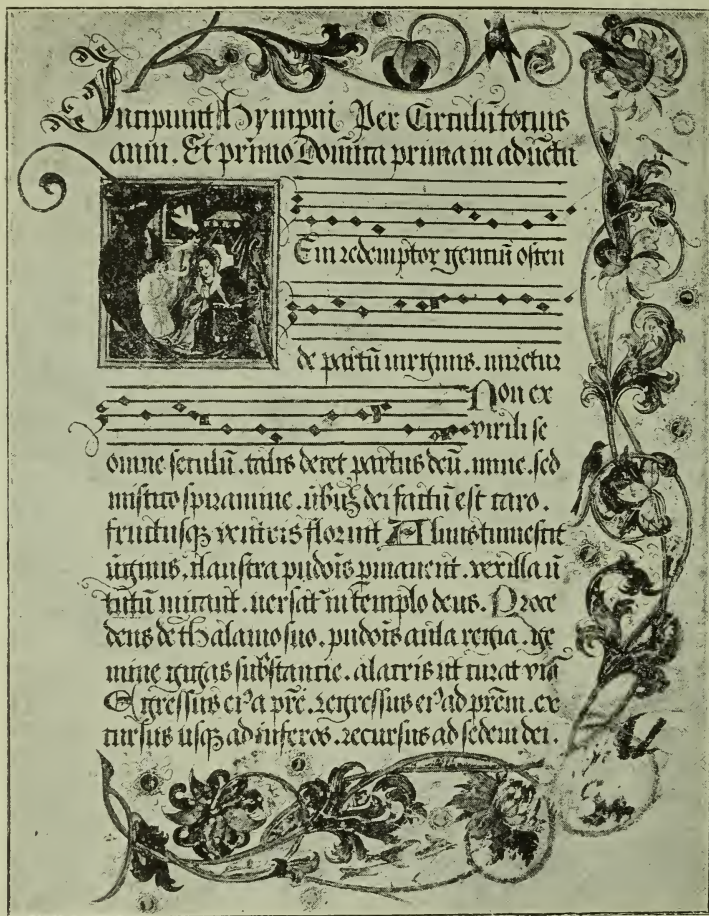 Incipiunt hympni Per Circulū totius
anni. Et primo Domīca prima in aduētu
Eni redemptor gentiū osten
de partū uirginis. miretur
Non ex
virili se
omne seculū. talis decet partus deū. mine. sed
mistico spiramine. ūbūꝫ dei factū est caro.
fructusqꝫ ventris floruit Aluus tumescit
ūginis. claustra pudoīs pmanent. vexilla ū
tutū micant. uersāt in templo deus. Proce
dens de thalamo suo. pudoīs aula regia. ge
mine gigas substantie. alacris ut currat viā
Egressus eiꝰ a prē. regressus eiꝰ ad prēm. ex
cursus usqꝫ ad inferos. recursus ad sedem dei.